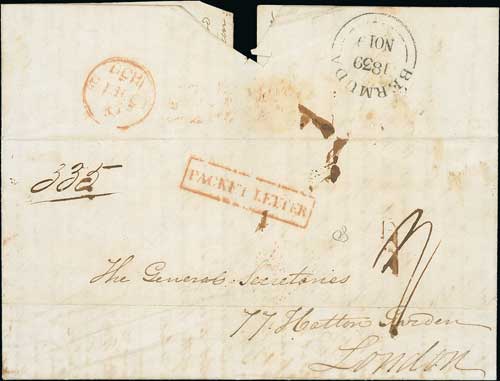 BERMUDA
NO 1
1839
335
PACKET LETTER
The General Secretaries
77 Hatton Garden
London